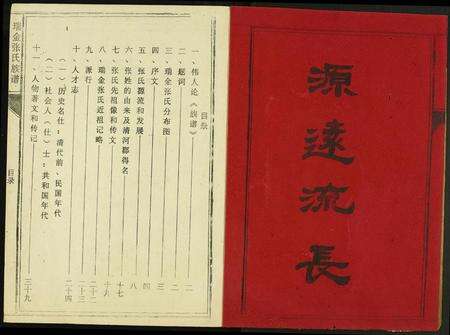 源遠流長
目录
一、伟人论《族谱》 二
二、题词 二
三、瑞金张氏分布图 三
四、序文 四
五、张氏源流和发展 八
六、张姓的由来及清河郡得名 十七
七、张氏先祖像和传文 十九
八、瑞金张氏近祖记略 二十二
九、派行 二十三
十、人才志 二十四
（一）历史名仕：清代前、民国年代
（二）社会人（仕）士：共和国年代
十一、人物著文和传记 三十九
瑞金张氏族谱
目录